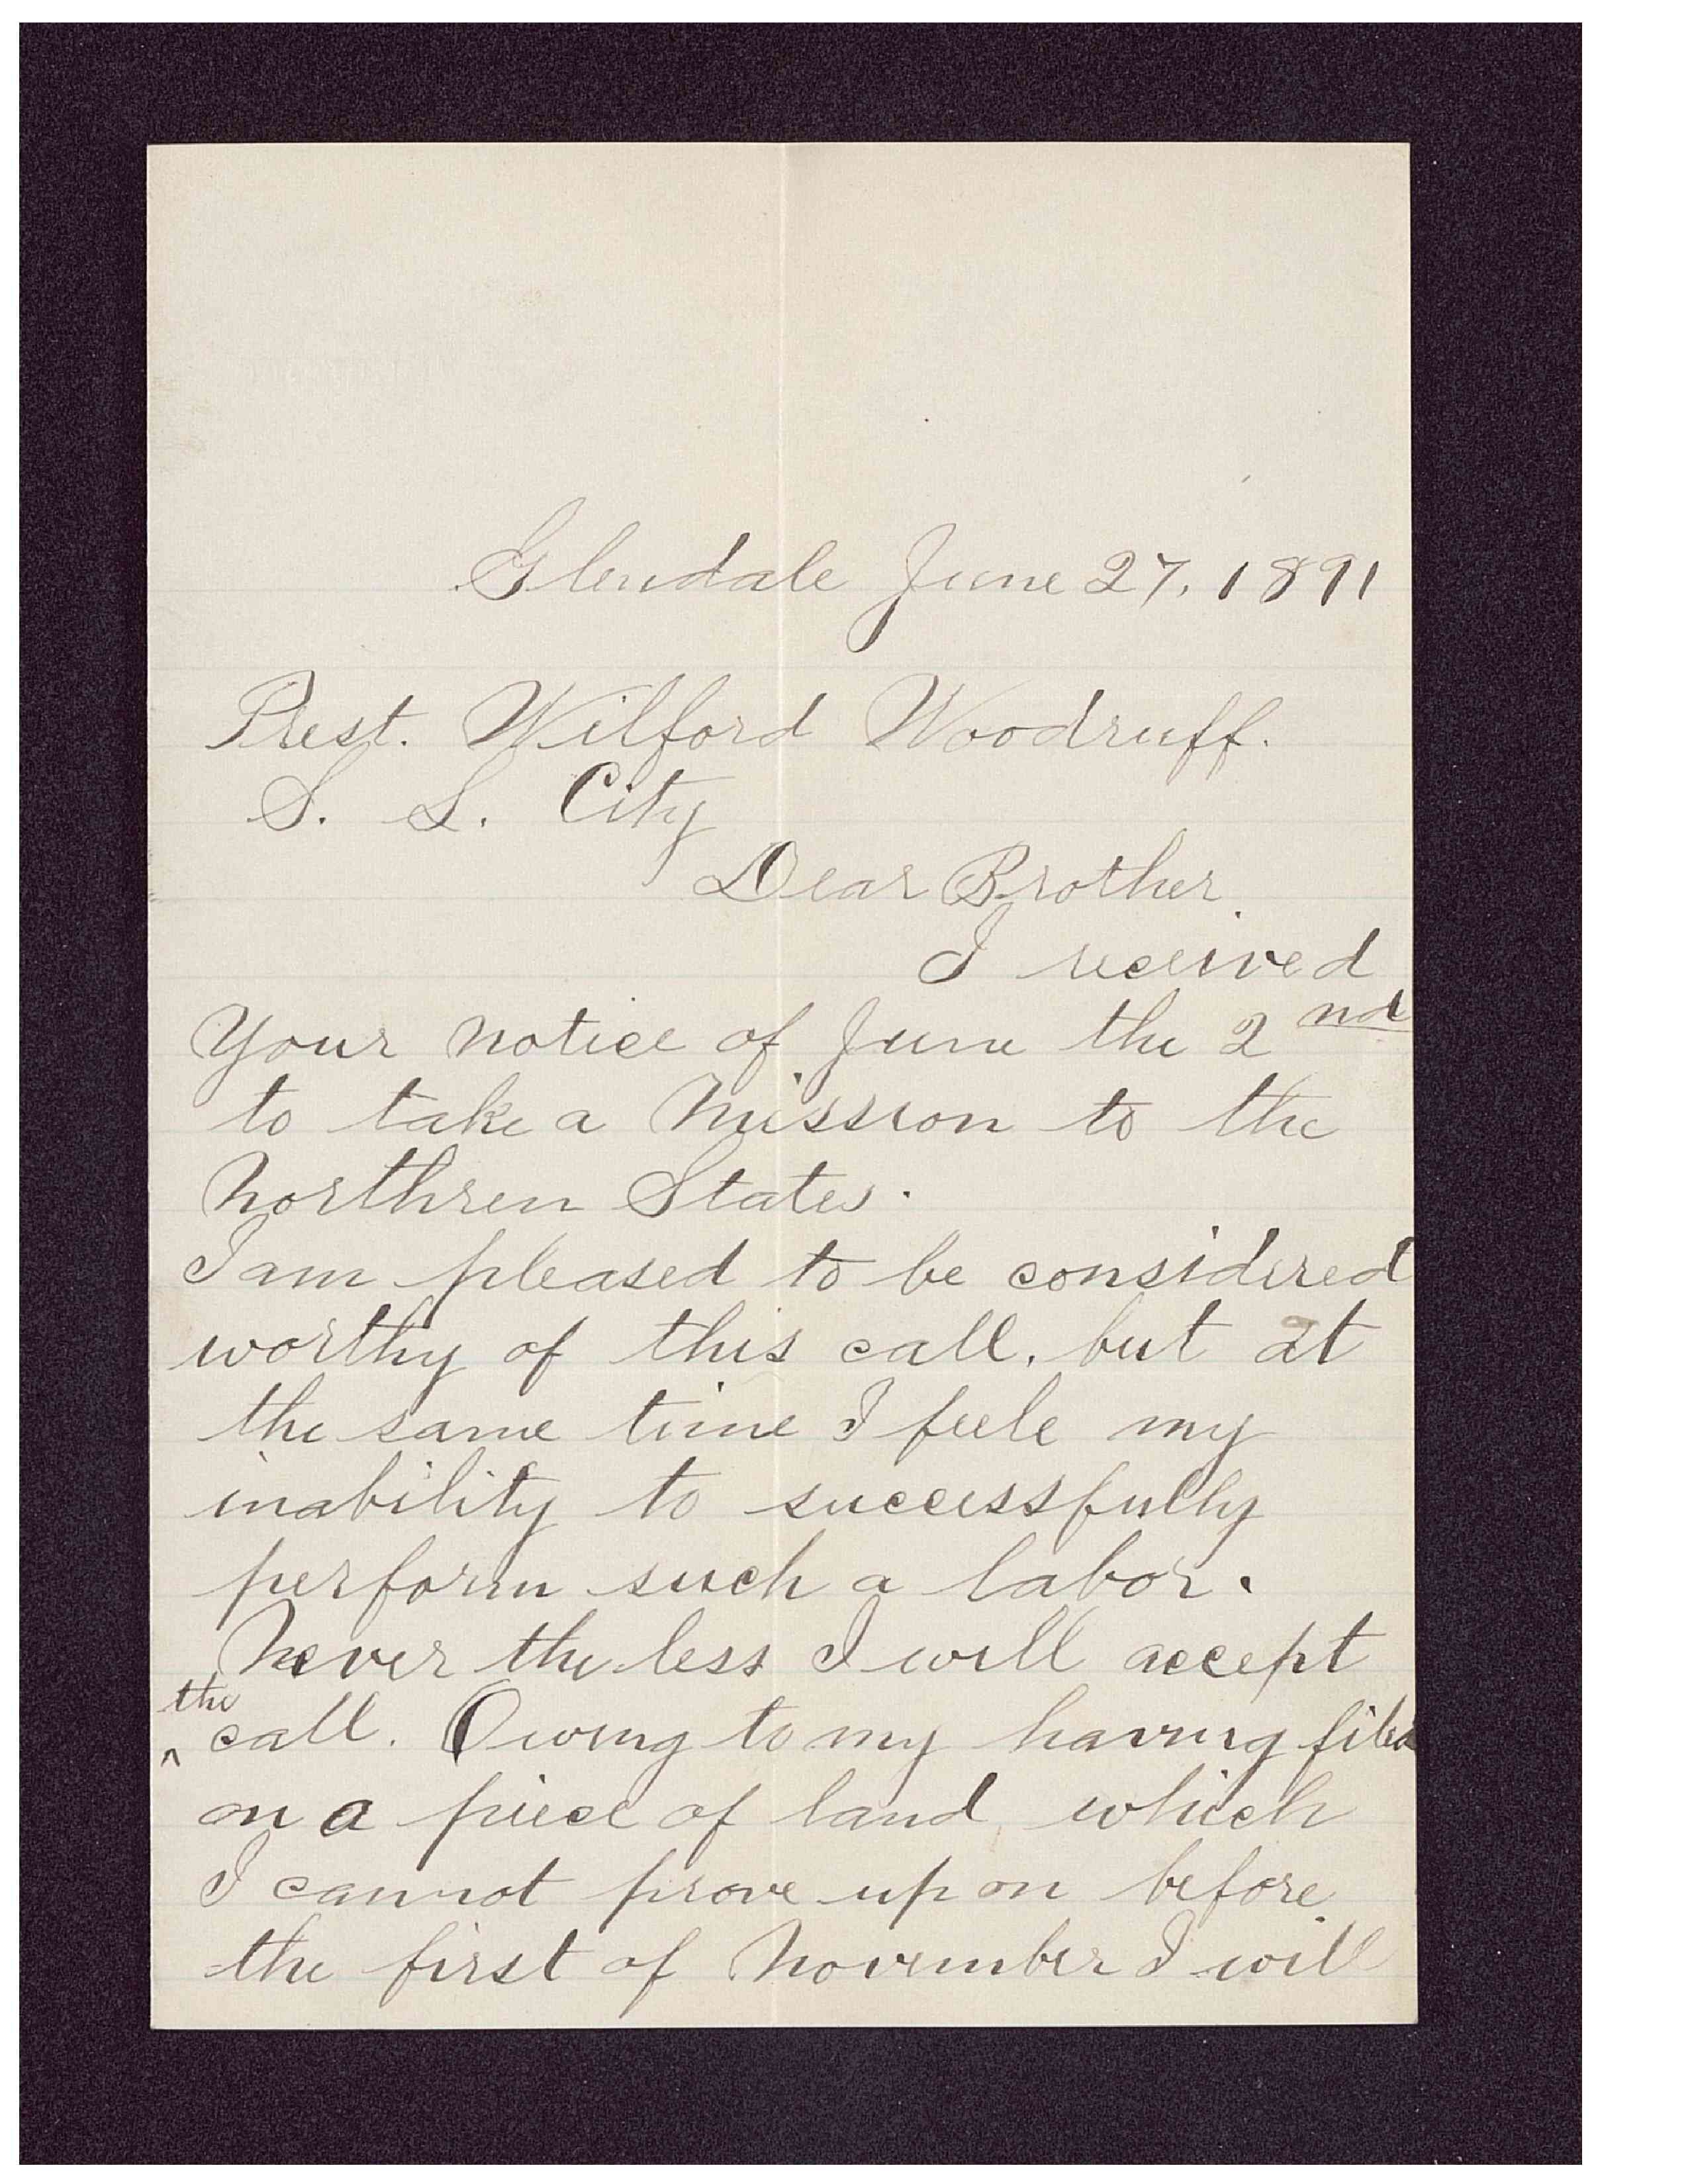 Glendale June 27, 1891
Prest. Wilford Woodruff.
S. L. City
Dear Brother.
I received
Your notice of June the 2nd
to take a Mission to the
Northren States.
I am pleased to be considered
worthy of this call, but at
the same time I feele my
inability to successfully
perform such a labor.
Never the less I will accept
the
^ call. Owing to my having filed
on a piece of land which
I cannot prove up on before
the first of November I will